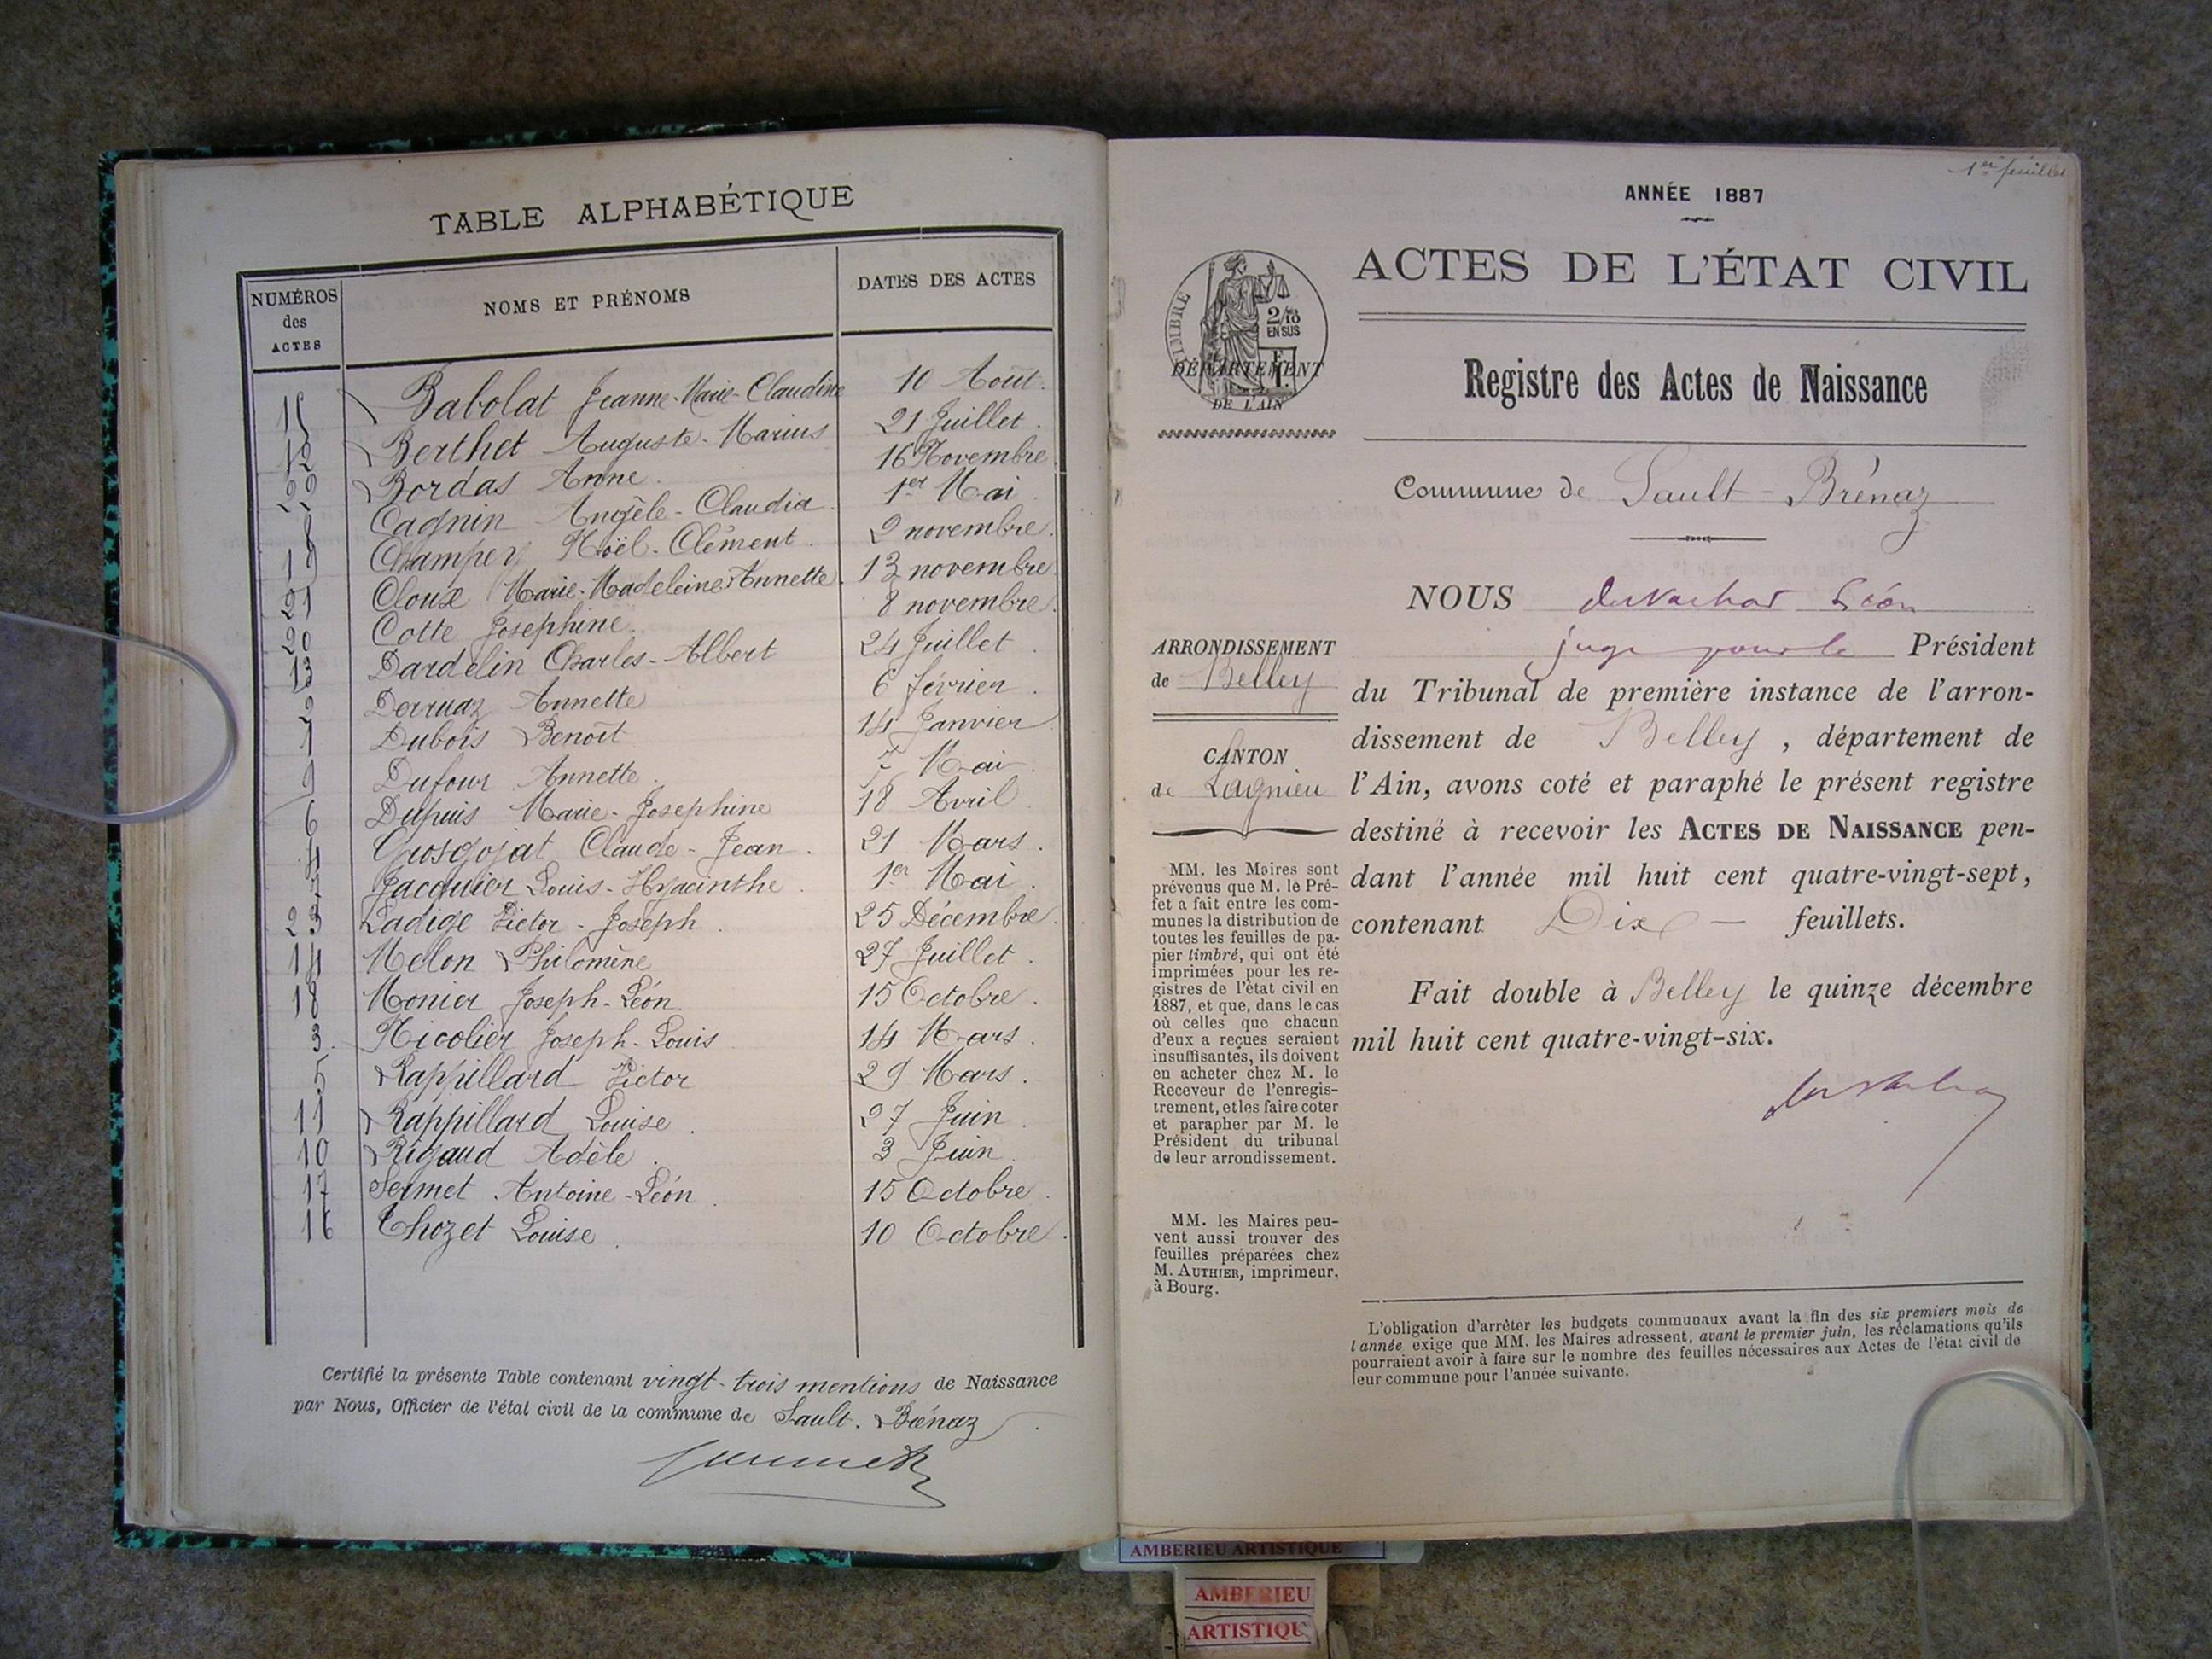 TABLE ALPHABÉTIQUE
NUMÉROS des ACTES NOMS ET PRÉNOMS DATES DES ACTES
15 Babolat Jeanne-Marie-Claudine 10 Août.
12 Berthet Auguste-Marius 21 Juillet.
22 Bordas Anne. 16 Novembre
8 Cagnin Angèle-Claudia. 1er Mai.
19 Champey Noël-Clément. 9 novembre.
21 Cloux Marie-Madeleine Annette. 13 novembre
20 Cotte Josephine. 8 novembre.
13 Dardelin Charles-Albert 24 Juillet.
2 Derruaz Annette 6 février.
1 Dubois Benoît 14 Janvier
9 Dufour Annette. 7 Mai.
6 Dupuis Marie-Josephine 18 Avril
4 Grosgojat Claude-Jean. 21 Mars.
7 Jacquier Louis-Hyacinthe. 1er Mai.
23 Ladige Victor-Joseph. 25 Décembre.
14 Melon Philomène 27 Juillet.
18 Monier Joseph-Léon. 15 Octobre.
3. Nicolier Joseph-Louis 14 Mars.
5 Rappillard Victor 29 Mars.
11 Rappillard Louise. 27 Juin.
10 Rigaud Adèle. 3 Juin.
17 Sermet Antoine-Léon. 15 Octobre.
16 Thozet Louise. 10 Octobre.
Certifié la présente Table contenant vingt-trois mentions de Naissance
par Nous, Officier de l'état civil de la commune de Sault-Brénaz.
1er feuillet
ANNÉE 1887
ACTES DE L'ÉTAT CIVIL
TIMBRE
2/10
EN SUS
DÉPARTEMENT
DE L'AIN
Registre des Actes de Naissance
Commune de Sault-Brénaz
NOUS Léon
juge pour le Président
du Tribunal de première instance de l'arron-
dissement de Belley, département de
l'Ain, avons coté et paraphé le présent registre
destiné à recevoir les ACTES DE NAISSANCE pen-
dant l'année mil huit cent quatre-vingt-sept,
contenant Dix — feuillets.
Fait double à Belley le quinze décembre
mil huit cent quatre-vingt-six.
ARRONDISSEMENT
de Belley
CANTON
de Lagnieu
MM. les Maires sont
prévenus que M. le Pré-
fet a fait entre les com-
munes la distribution de
toutes les feuilles de pa-
pier timbré, qui ont été
imprimées pour les re-
gistres de l'état civil en
1887, et que, dans le cas
où celles que chacun
d'eux a reçues seraient
insuffisantes, ils doivent
en acheter chez M. le
Receveur de l'enregis-
trement, et les faire coter
et parapher par M. le
Président du tribunal
de leur arrondissement.
MM. les Maires peu-
vent aussi trouver des
feuilles préparées chez
M. AUTHIER, imprimeur,
à Bourg.
L'obligation d'arrêter les budgets communaux avant la fin des six premiers mois de
l'année exige que MM. les Maires adressent, avant le premier juin, les réclamations qu'ils
pourraient avoir à faire sur le nombre des feuilles nécessaires aux Actes de l'état civil de
leur commune pour l'année suivante.
AMBERIEU ARTISTIQUE
AMBERIEU
ARTISTIQU